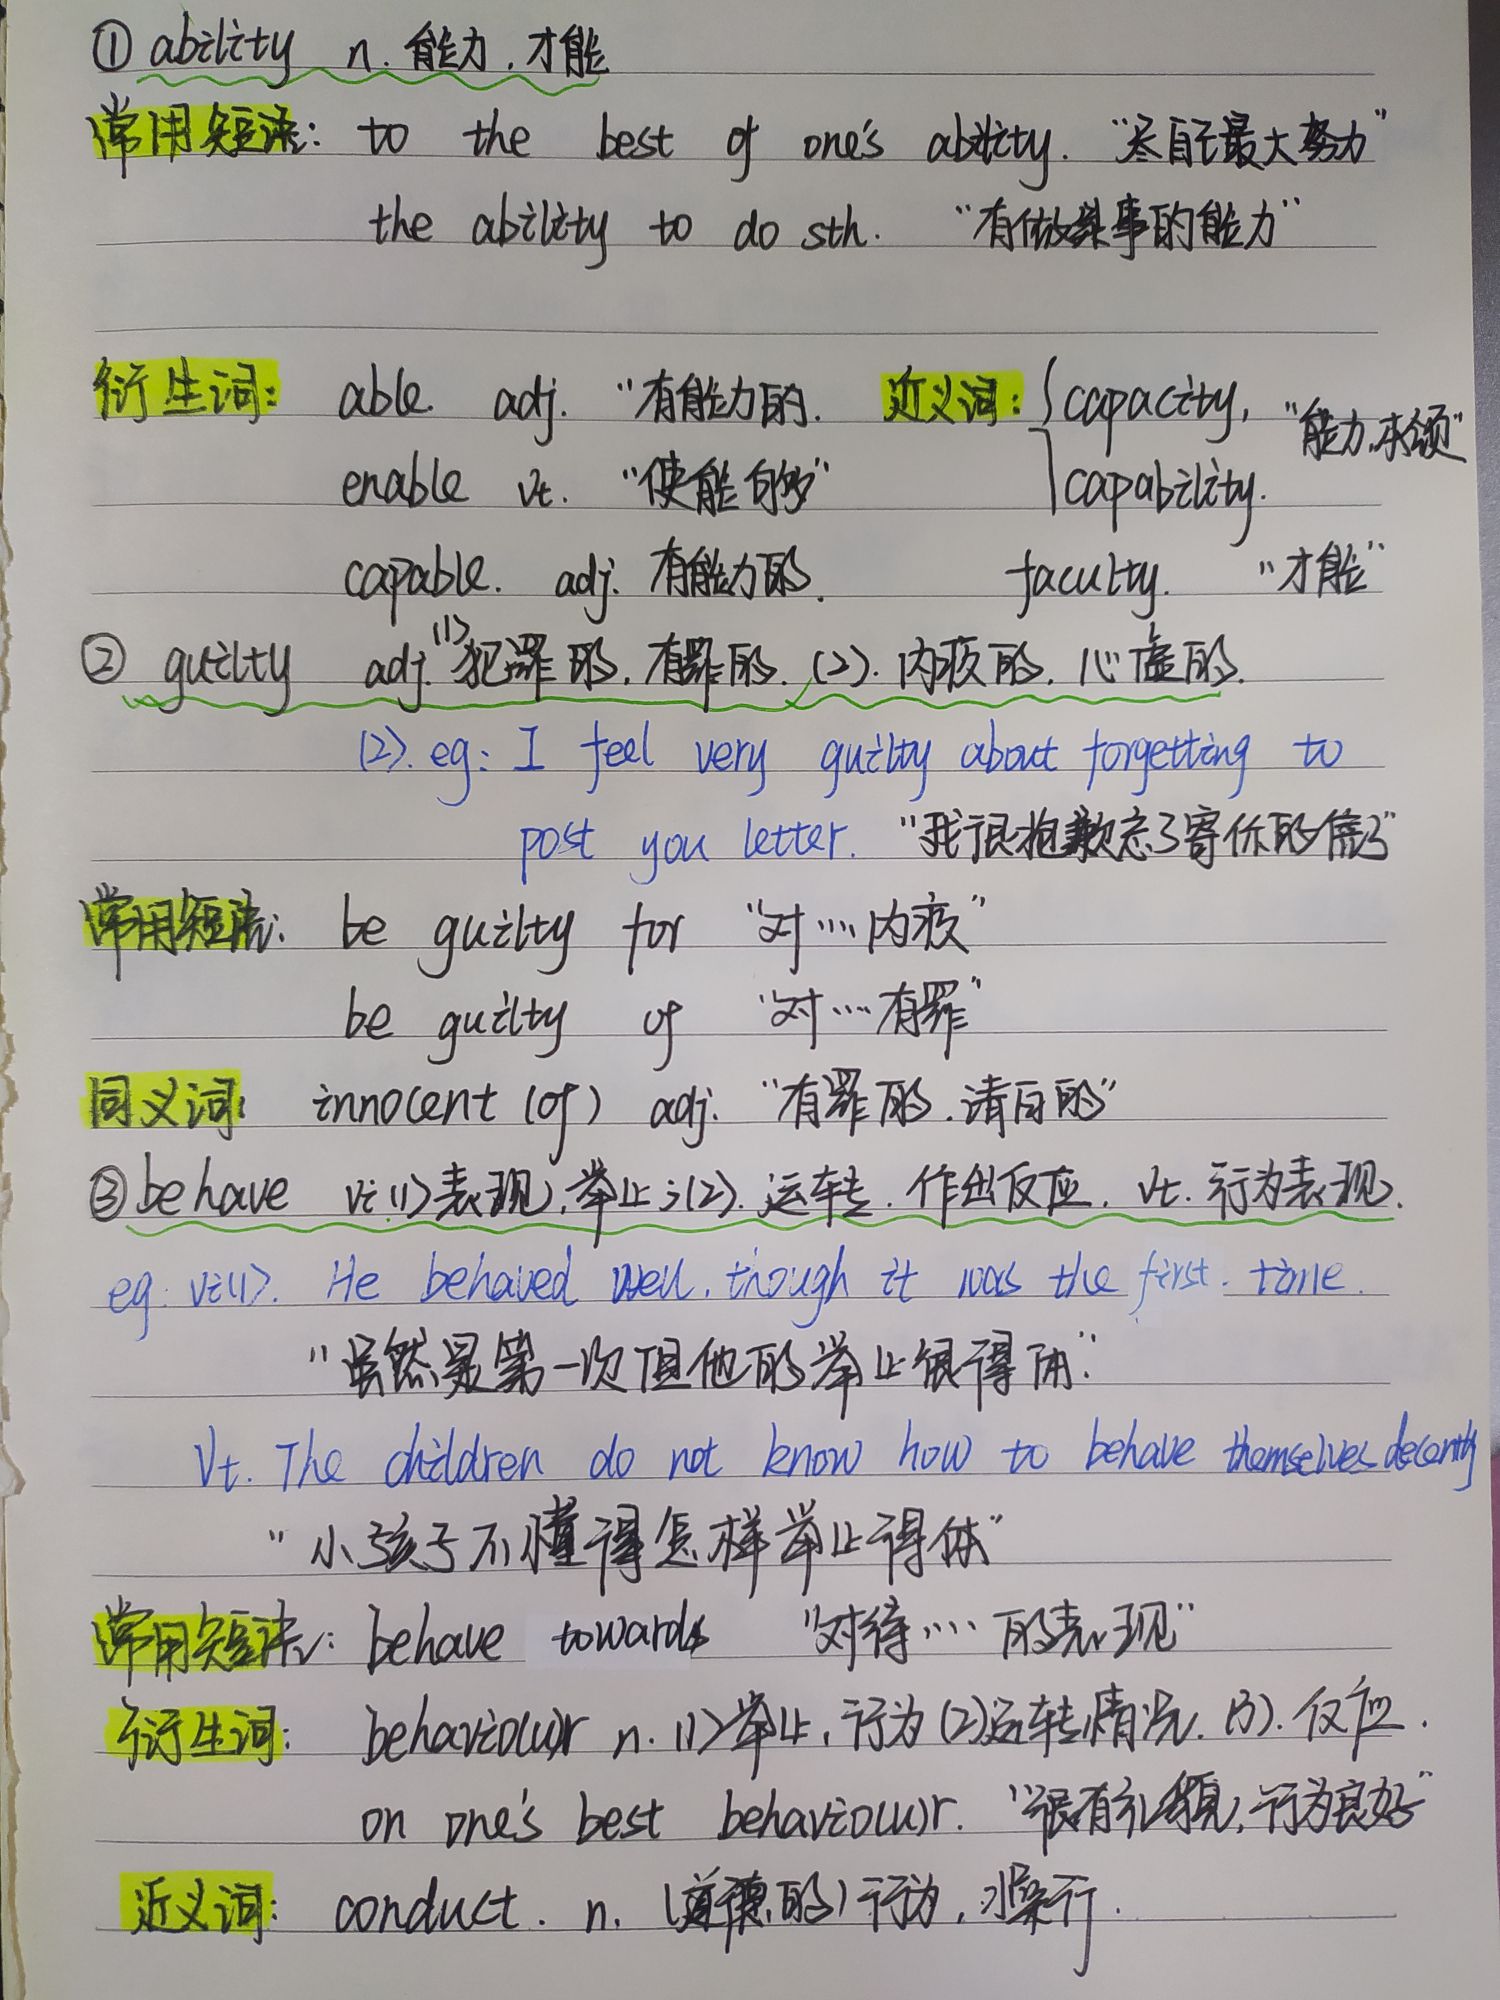 ① ability n. 能力.才能
常用短语: to the best of one's ability. "尽自己最大努力"
the ability to do sth. "有做某事的能力"
衍生词: able adj. "有能力的. 近义词: { capacity, "能力.本领"
enable vt. "使能够" capability.
capable. adj. 有能力的. faculty. "才能"
② guilty adj. (1) 犯罪的.有罪的. (2). 内疚的. 心虚的.
(2). eg: I feel very guilty about forgetting to
post you letter. "我很抱歉忘了寄你的信了"
常用短语: be guilty for "对....内疚"
be guilty of "对....有罪"
同义词: innocent (of) adj. "有罪的.清白的"
③ behave vi (1) 表现,举止;(2). 运转.作出反应. vt. 行为表现.
eg: vi(1). He behaved well, though it was the first. time.
"虽然是第一次但他的举止很得体."
Vt. The children do not know how to behave themselves decently
"小孩子不懂得怎样举止得体"
常用短语: behave towards "对待....的表现"
衍生词: behavio(u)r n. (1) 举止,行为 (2)运转情况. (3). 仅应.
on one's best behavio(u)r. "很有礼貌,行为良好"
近义词: conduct. n. (道德的)行为,操行.